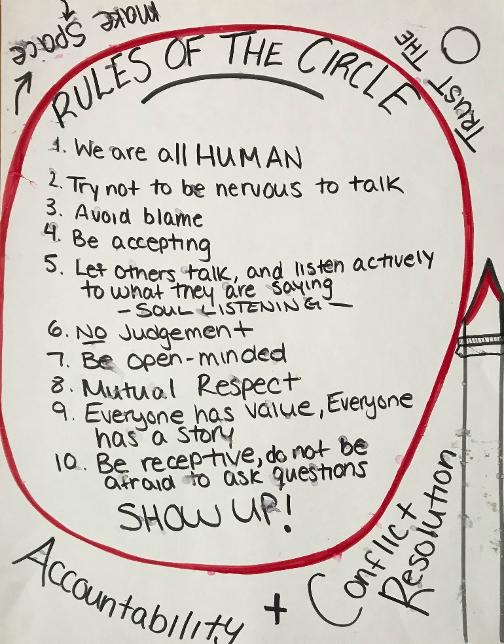 make
Space
TRUST THE
RULES OF THE CIRCLE
1. We are all HUMAN
2. Try not to be nervous to talk
3. Avoid blame
4. Be accepting
5. Let others talk, and listen actively
to what they are saying
- SOUL LISTENING -
6. NO Judgement
7. Be open-minded
8. Mutual Respect
9. Everyone has value, Everyone
has a story
10. Be receptive, do not be
afraid to ask questions
SHOW UP!
Accountability + Conflict
Resolution